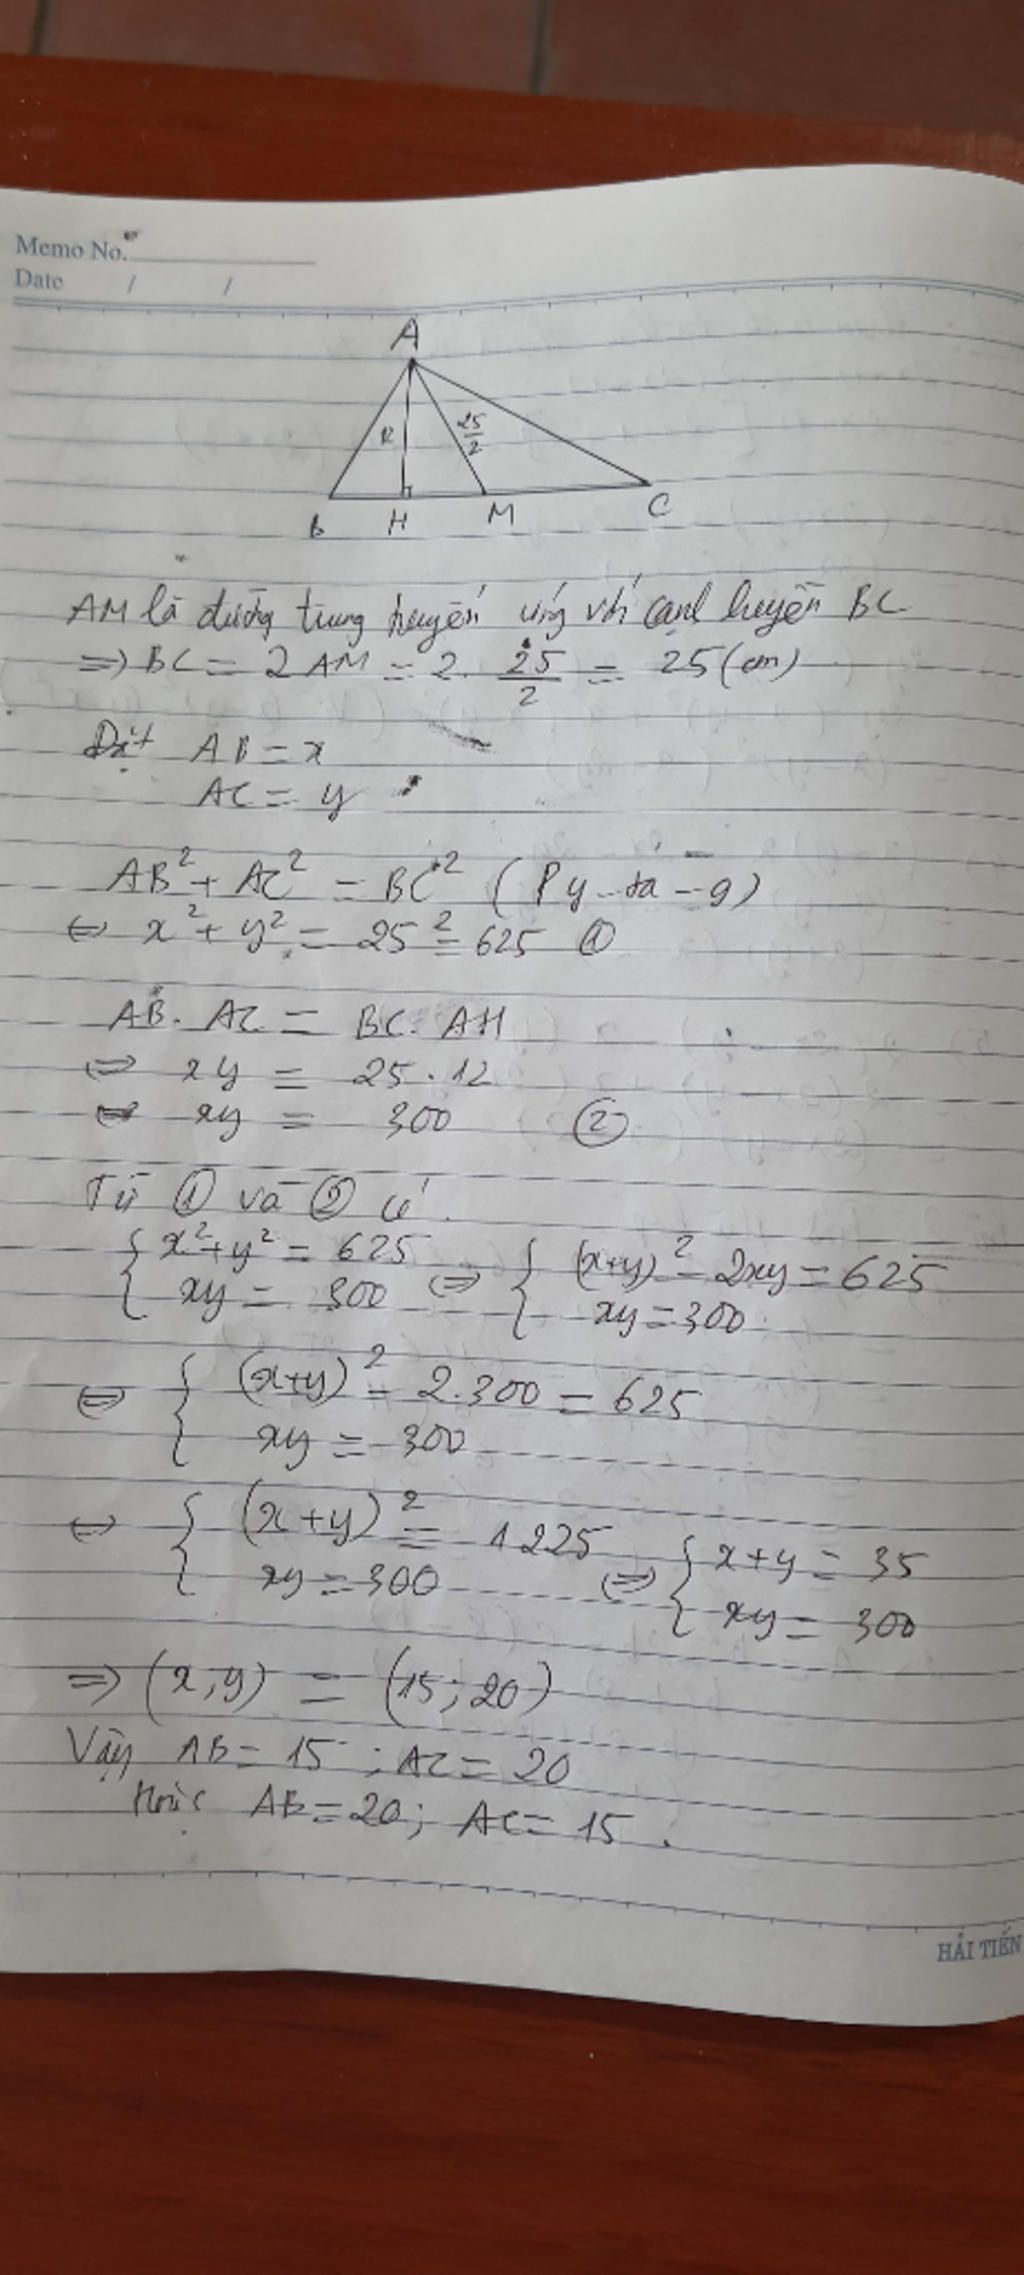 Memo No.
Date / /
A
12
25/2
B H M C
AM là đường trung tuyến ứng với cạnh huyền BC
=> BC = 2 AM = 2. 25/2 = 25 (cm)
Đặt AB = x
AC = y
AB² + AC² = BC² (Py-ta-g)
<=> x² + y² = 25² = 625 ①
AB. AC = BC. AH
<=> xy = 25.12
<=> xy = 300 ②
Từ ① và ② có
{ x² + y² = 625 <=> { (x+y)² - 2xy = 625
xy = 300 xy = 300
<=> { (x+y)² - 2.300 = 625
xy = 300
<=> { (x+y)² = 1225 <=> { x+y = 35
xy = 300 xy = 300
=> (x;y) = (15;20)
Vậy AB = 15 ; AC = 20
Hoặc AB = 20; AC = 15.
HẢI TIẾN